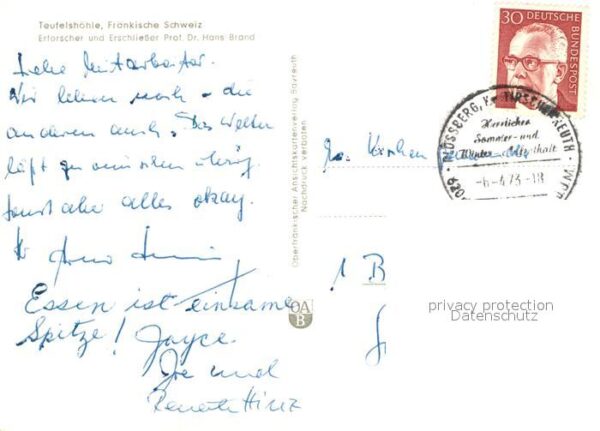 Teufelshöhle, Fränkische Schweiz
Erforscher und Erschließer Prof. Dr. Hans Brand
Liebe Mitarbeiter.
Wir leben noch - die
anderen auch. Das Wetter
läßt zu wünschen übrig,
sonst aber alles okay.
Essen ist einsame
Spitze! Joyce.
und
Renate Hinz
Oberfränkischer Ansichtskartenverlag Bayreuth
Nachdruck verboten
OA
B
30 DEUTSCHE
BUNDESPOST
PLÖSSBERG, Kr. TIRSCHENREUTH
Herrlicher
Sommer- und
Winter-Aufenthalt
-6-4.73-18
1 B
privacy protection
Datenschutz